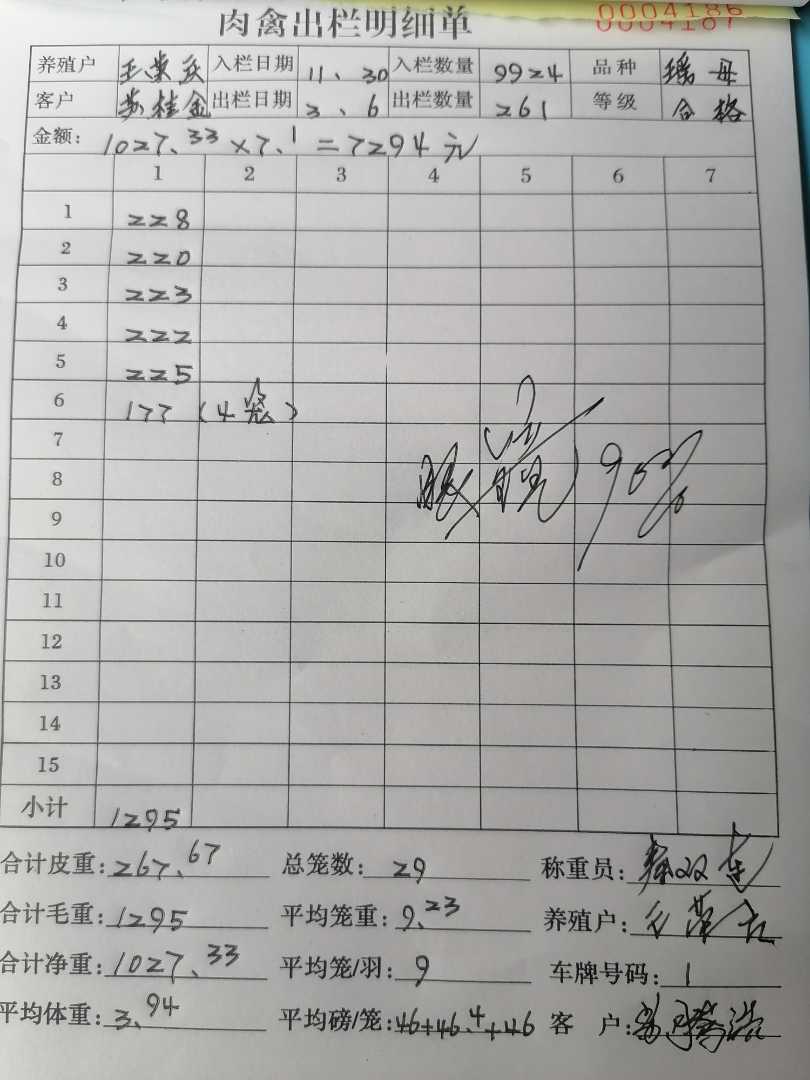 0004186
0004187
肉禽出栏明细单
养殖户 王荣庆 入栏日期 11、30 入栏数量 9924 品种 瑶母
客户 苏桂金 出栏日期 3、6 出栏数量 261 等级 合格
金额: 1027.33×7.1=7294元
1 2 3 4 5 6 7
1 228
2 220
3 223
4 222
5 225
6 177(4笼)
7
8 90%
9
10
11
12
13
14
15
小计 1295
合计皮重: 267.67 总笼数: 29 称重员:
合计毛重: 1295 平均笼重: 9.23 养殖户:
合计净重: 1027.33 平均笼/羽: 9 车牌号码: 1
平均体重: 3.94 平均磅/笼: 46+46.4+46 客户: